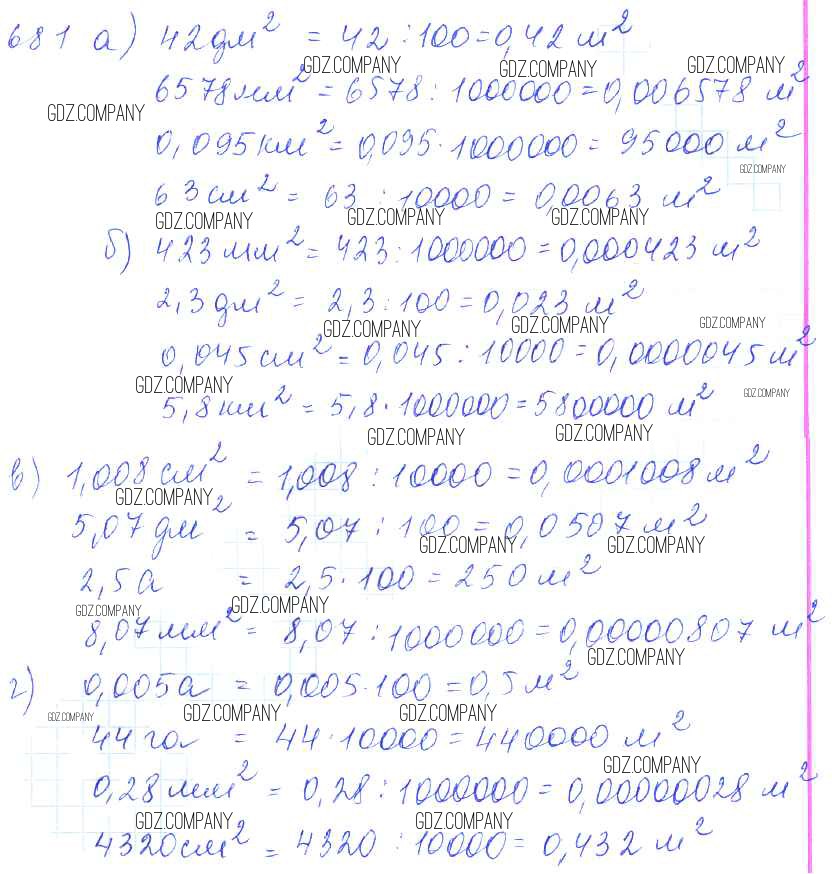 681 а) 42 дм² = 42 : 100 = 0,42 м²
GDZ.COMPANY GDZ.COMPANY GDZ.COMPANY
6578 мм² = 6578 : 1000000 = 0,006578 м²
GDZ.COMPANY
0,095 км² = 0,095 · 1000000 = 95000 м²
GDZ.COMPANY
63 см² = 63 : 10000 = 0,0063 м²
GDZ.COMPANY GDZ.COMPANY GDZ.COMPANY
б) 423 мм² = 423 : 1000000 = 0,000423 м²
2,3 дм² = 2,3 : 100 = 0,023 м²
GDZ.COMPANY GDZ.COMPANY GDZ.COMPANY
0,045 см² = 0,045 : 10000 = 0,0000045 м²
GDZ.COMPANY GDZ.COMPANY
5,8 км² = 5,8 · 1000000 = 5800000 м²
GDZ.COMPANY GDZ.COMPANY
в) 1,008 см² = 1,008 : 10000 = 0,0001008 м²
GDZ.COMPANY
5,07 дм² = 5,07 : 100 = 0,0507 м²
GDZ.COMPANY GDZ.COMPANY
2,5 а = 2,5 · 100 = 250 м²
GDZ.COMPANY GDZ.COMPANY
8,07 мм² = 8,07 : 1000000 = 0,00000807 м²
GDZ.COMPANY
г) 0,005 а = 0,005 · 100 = 0,5 м²
GDZ.COMPANY GDZ.COMPANY GDZ.COMPANY
44 га = 44 · 10000 = 440000 м²
GDZ.COMPANY
0,28 мм² = 0,28 : 1000000 = 0,00000028 м²
GDZ.COMPANY GDZ.COMPANY
4320 см² = 4320 : 10000 = 0,432 м²